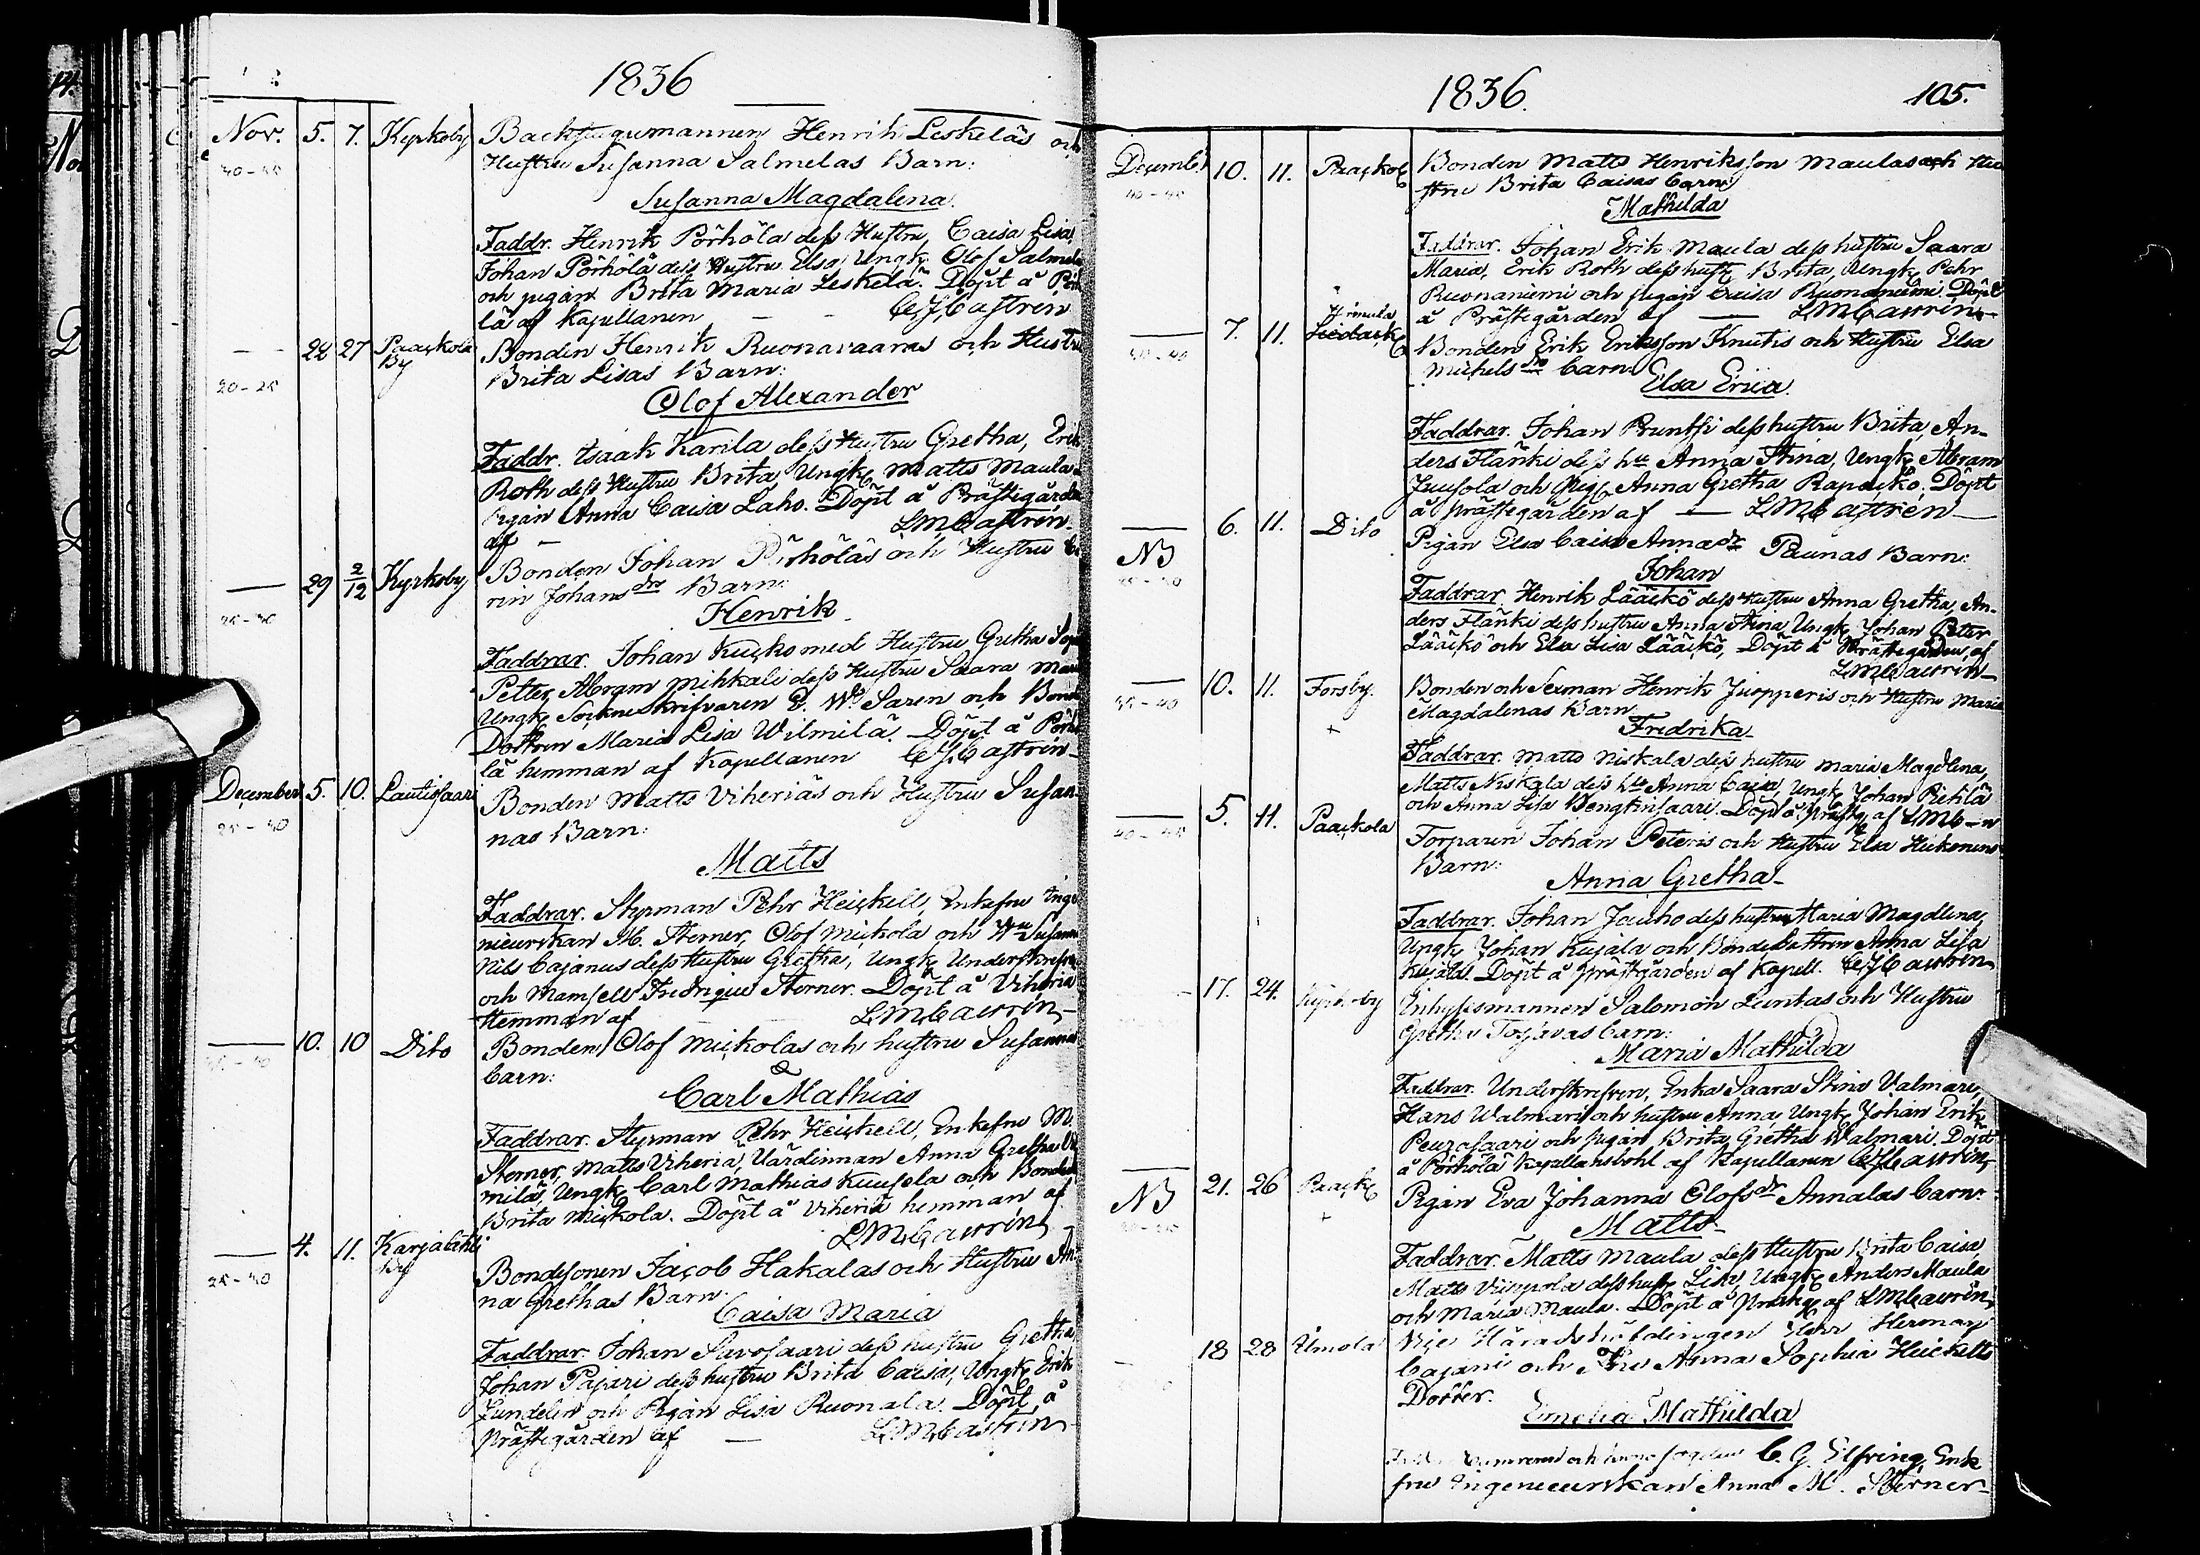 1836
Nov. 5. 7. Kyrkoby Backstugumannen Henrik Leskeläs och
40-45 Hustru Susanna Salmelas Barn:
Susanna Magdalena.
Faddr. Henrik Pörhölä dess Hustru, Caisa Lisa,
Johan Pörhölä dess Hustru Elsa, Ungk. Olof Salmela
och pigan Brita Maria Leskelä. Döpt å Pörhö
lä af Kapellanen — C.J.Castrén
— 22 27 Paackola By Bonden Henrik Ruonavaaras och Hustru
20-25 Brita Lisas Barn:
Olof Alexander
Faddr. Isaak Karila dess Hustru Gretha, Erik
Roth dess Hustru Brita, Ungk. Matts Maula
Pigan Anna Caisa Laho. Döpt å Prästegården
af — L.M.Castrén.
— 29 2/12 Kyrkoby Bonden Johan Pörhöläs och Hustru
25-30 rin Johans dr Barn:
Henrik
Faddrar. Johan Kucko med Hustru Gretha
Petter Abram Mihkali dess Hustru Saara
Ungk. Sockneskrifvaren Saren och Bonde
Dottren Maria Lisa Wilmilä. Döpt å Pörhö
lä hemman af Kapellanen C.J.Castrén
December 5. 10. Lautiosaari Bonden Matts Viheriäs och Hustru Susan
25-30 nas Barn:
Matts
Faddrar. Styrman Pehr Heickell, Enkefru Inge
nieurskan M. Sterner, Olof Mickola och Hu Susanna
Nils Cajanus dess Hustru Gretha, Ungk. Underskrifven
och Mamsell Fredrique Sterner. Döpt å Viheriä
Hemman af L.M.Castrén
— 10. 10 Dito Bonden Olof Mickolas och hustru Susannas
barn:
Carl Mathias
Faddrar. Styrman Pehr Heickell, Enkefru M.
Sterner, Matts Viheria, Värdinnan Anna Gretha Wil
milä, Ungk. Carl Mathias Kuusela och Bonded.
Brita Mickola. Döpt å Viheriä hemman af
L.M.Castrén
— 4. 11. Karjalahti By Bondesonen Jacob Hakalas och Hustru An
25-30 na Grethas Barn:
Caisa Maria
Faddrar. Johan Savosaari dess hustru Gretha,
Johan Pajari dess hustru Brita Caisa, Ungk. Erik
Lundelin och Pigan Lisa Ruonala. Döpt å
Prästegården af — L.M.Castrén
1836. 105.
Decemb. 10. 11. Paacko Bonden Matts Henriksson Maulas och Hu
40-45 stru Brita Caisas barn:
Mathilda
Faddrar. Johan Erik Maula dess hustru Saara
Maria, Erik Roth dess hust. Brita, Ungk. Pehr
Ruonaniemi och pigan Caisa Ruonaniemi. Döpt
å Prästegården af — L.M.Castrén
— 7. 11. Liedack Bonden Erik Eriksson Knutis och Hustru Elsa
Michels dr barn:
Elsa Erica.
Faddrar. Johan Pruntsi dess hustru Brita, An-
ders Flänki dess hu Anna Stina, Ungk. Abram
Juusola och Pig. Anna Gretha Rapacko. Döpt
å Prästegården af — L.M.Castrén
— 6. 11. Dito Pigan Elsa Caisa Annasdr Paunas Barn:
NB Johan
Faddrar. Henrik Lääckö dess Hustru Anna Gretha, An-
ders Flänki dess hustru Anna Stina, Ungk. Johan Peter
Lääckö och Elsa Lisa Lääckö. Döpt å Prästegården af
L.M.Castrén
— 10. 11. Forsby. Bonden och Sexman Henrik Juopperis och Hustru Maria
35-40 Magdalenas Barn.
+ Fredrika
Faddrar. Matts Niskala dess hustru Maria Magdlena,
Matts Niskala dess hu Anna Caisa, Ungk. Johan Pietilä
och Anna Lisa. Döpt å Prästg. af L.M.C—n
— 5. 11. Paackola Torparen Johan Peteris och Hustru Elsa
40-45 Barn:
Anna Gretha
Faddrar. Johan Jauho dess hustru Maria Magdlena,
Ungk. Johan Kujala och Bondedottren Anna Lisa
Kujala. Döpt å Prästgården af Kapell. C.J.Castrén
17. 24. Kyrkoby Inhysesmannen Salomon Luntas och Hustru
Gretha Torjavas barn:
Maria Mathilda
Faddrar. Underskrefven, Enka Saara Stina Valmari,
Hans Walmari och hustru Anna, Ungk. Johan Erik
Peurasaari och pigan Brita Gretha Walmari. Döpt
å Pörhölä Kapellansbohl af Kapellanen C.J.Castrén
— 21. 26 Paack Pigan Eva Johanna Olofsdr Annalas barn:
NB + Matts
Faddrar. Matts Maula dess Hustru Brita Caisa,
Matts dess hust. Lisa, Ungk. Anders Maula
och Maria Maula. Döpt å Prästg. af L.M.Castrén
— 18 28 Umola Vice Häradshöfdingen Herr Herman
Cajani och Fru Anna Sophia Heickells
Dotter.
Emelia Mathilda
C. G. Elfving, Enk
fru Ingenieurskan Anna M. Sterner